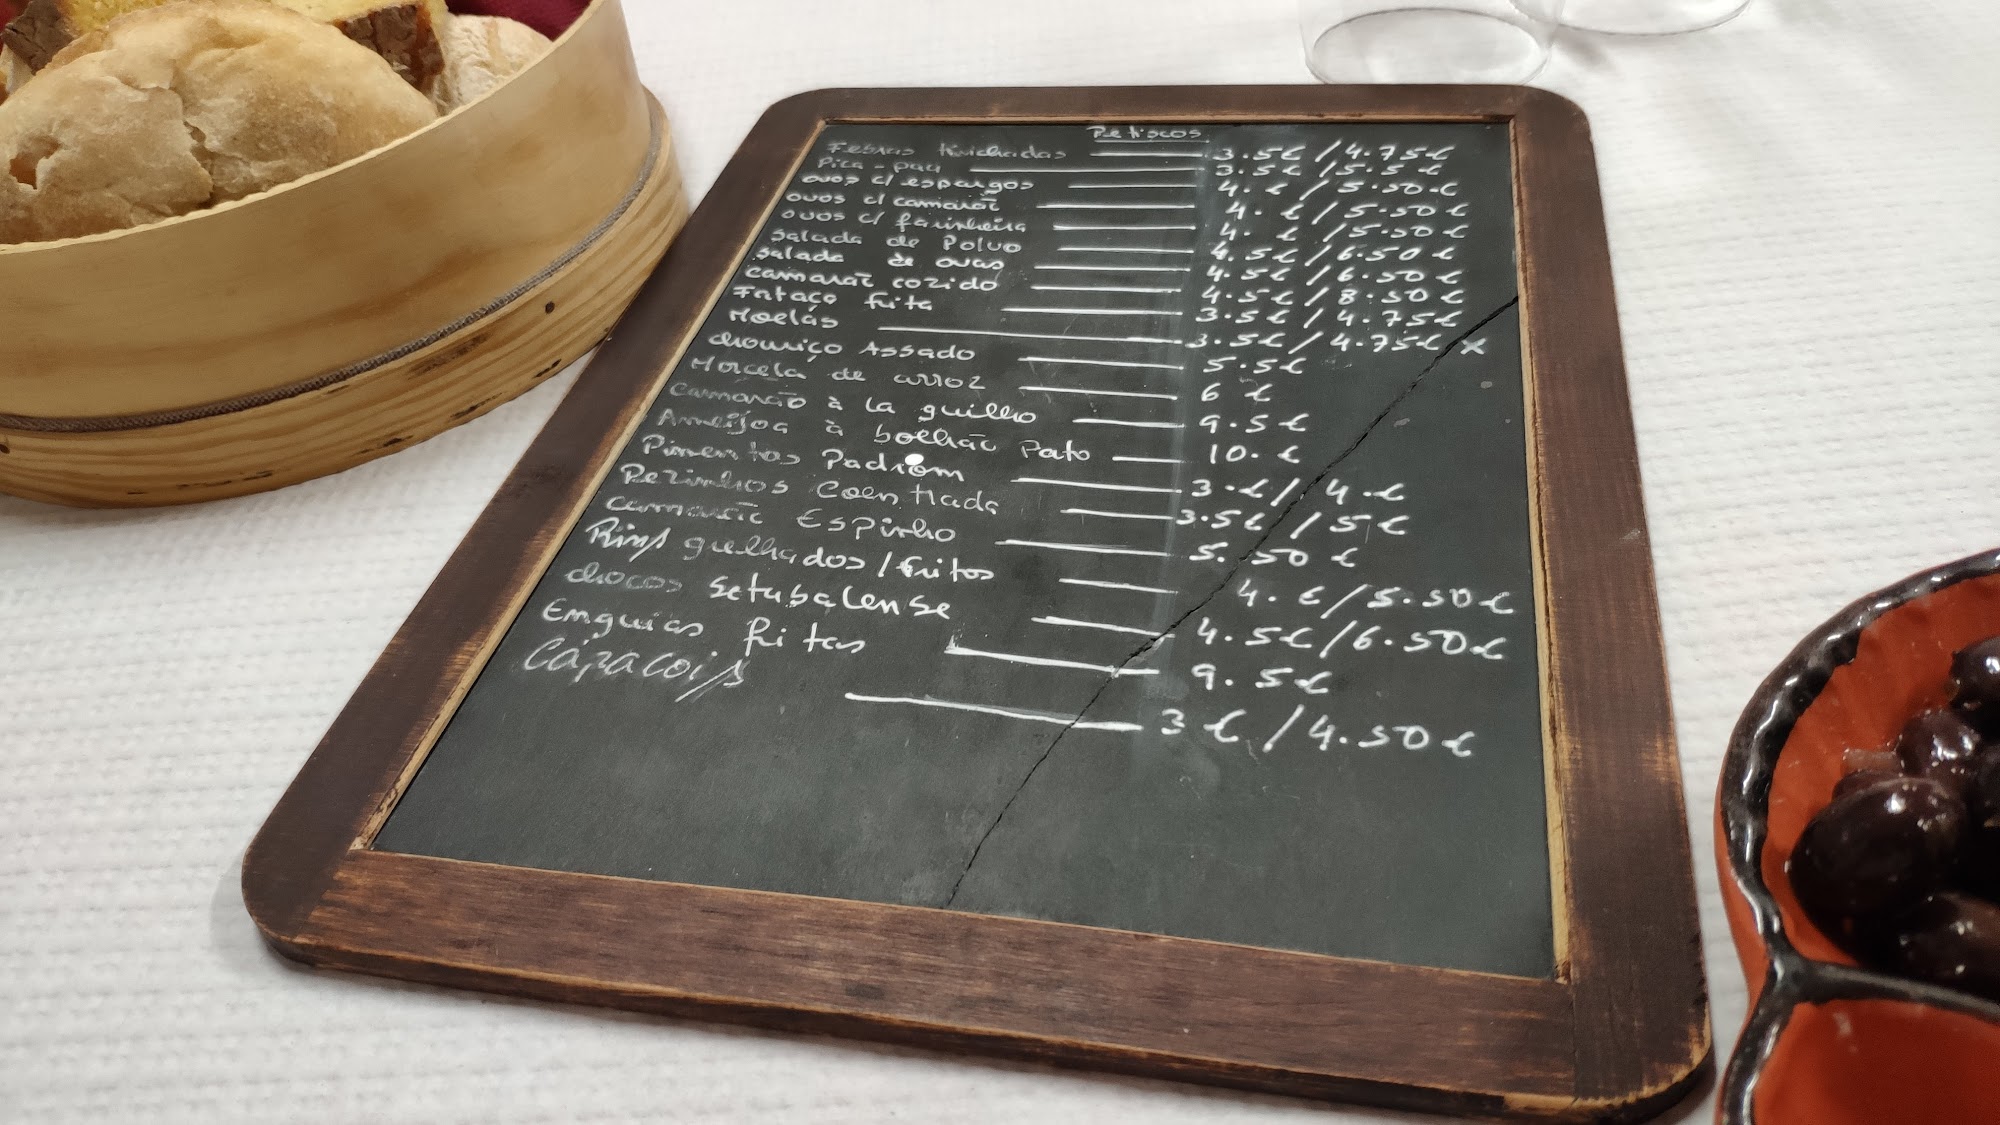 Petiscos
Febras trinchadas 3.5€ / 4.75€
Pica-pau 3.5€ / 5.5€
ovos c/ espargos 4.€ / 5.50€
ovos c/ camarão 4.€ / 5.50€
ovos c/ farinheira 4.€ / 5.50€
Salada de Polvo 4.5€ / 6.50€
Salada de ovas 4.5€ / 6.50€
camarão cozido 4.5€ / 8.50€
Fataça frita 3.5€ / 4.75€
Moelas 3.5€ / 4.75€ x
chouriço Assado 5.5€
Morcela de arroz 6€
camarão à la guilho 9.5€
Ameijoa à bolhão Pato 10.€
Pimentos Padrom 3.€ / 4.€
Pezinhos Coentrada 3.5€ / 5€
camarão Espinho 5.50€
Rins grelhados / fritos 4.€ / 5.50€
chocos setubalense 4.5€ / 6.50€
Emguias fritas 9.5€
Cáracois 3€ / 4.50€